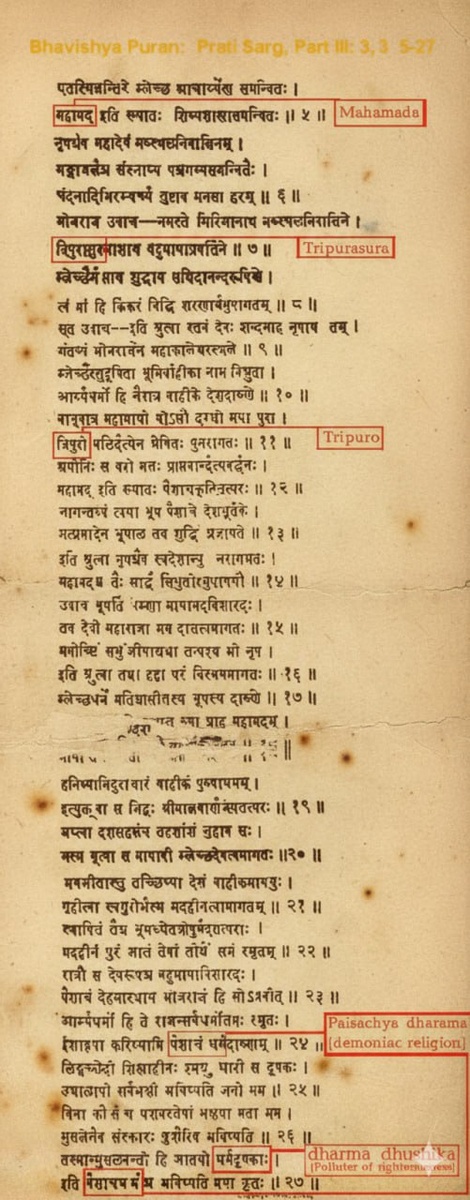 Bhavishya Puran: Prati Sarg, Part III: 3, 3 5-27
एतस्मिन्नन्तिरे म्लेच्छ आचार्य्येण समन्वितः ।
महामद इति ख्यातः शिष्यशाखासमन्वितः ॥ ५ ॥
Mahamada
नृपश्चैव महादेवं मरुस्थलनिवासिनम् ।
गङ्गाजलैश्च संस्नाप्य पञ्चगव्यसमन्वितैः ।
चंदनादिभिरभ्यर्च्य तुष्टाव मनसा हरम् ॥ ६ ॥
भोजराज उवाच—नमस्ते गिरिजानाथ मरुस्थलनिवासिने ।
त्रिपुरासुरनाशाय बहुमायाप्रवर्तिने ॥ ७ ॥
Tripurasura
म्लेच्छैर्गुप्ताय शुद्धाय सच्चिदानन्दरूपिणे ।
त्वं मां हि किंकरं विद्धि शरणार्थमुपागतम् ॥ ८ ॥
सूत उवाच--इति श्रुत्वा स्तवं देवः शब्दमाह नृपाय तम् ।
गंतव्यं भोजराजेन महाकालेश्वरस्थले ॥ ९ ॥
म्लेच्छैस्सुदूषिता भूमिर्वाहीका नाम विश्रुता ।
आर्य्यधर्मो हि नैवात्र वाहीके देशदारुणे ॥ १० ॥
बभूवात्र महामायी योऽसौ दग्धो मया पुरा ।
त्रिपुरो बलिदैत्येन प्रेषितः पुनरागतः ॥ ११ ॥
Tripuro
अयोनिः स वरो मत्तः प्राप्तवान्दैत्यवर्द्धनः ।
महामद इति ख्यातः पैशाचकृतितत्परः ॥ १२ ॥
नागन्तव्यं त्वया भूप पैशाचे देशधूर्तके ।
मत्प्रसादेन भूपाल तव शुद्धिः प्रजायते ॥ १३ ॥
इति श्रुत्वा नृपश्चैव स्वदेशान्पु नरागमतः ।
महामदश्च तैः सार्द्धं सिंधुतीरमुपाययौ ॥ १४ ॥
उवाच भूपतिं प्रेम्णा मायामदविशारदः ।
तव देवो महाराजा मम दासत्वमागतः ॥ १५ ॥
ममोच्छिष्टं संभुंजीयाद्यथा तत्पश्य भो नृप ।
इति श्रुत्वा तथा दृष्ट्वा परं विस्मयमागतः ॥ १६ ॥
म्लेच्छधर्मे मतिश्चासीत्तस्य भूपस्य दारुणे ॥ १७ ॥
प्राह महामदम् ।
हनिष्यामिदुराचारं वाहीकं पुरुषाधमम् ।
इत्युक्त्वा स द्विजः श्रीमान्नवार्णजपतत्परः ॥ १९ ॥
जप्त्वा दशसहस्रं च तद्दशांशं जुहाव सः ।
भस्म भूत्वा स मायावी म्लेच्छदेवत्वमागतः ॥२० ॥
भयभीतास्तु तच्छिष्या देशं वाहीकमाययुः ।
गृहीत्वा स्वगुरोर्भस्म मदहीनत्वामागतम् ॥ २१ ॥
स्थापितं तैश्च भूमध्येतत्रोषुर्मदतत्पराः ।
मदहीनं पुरं जातं तेषां तीर्थं समं स्मृतम् ॥ २२ ॥
रात्रौ स देवरूपश्च बहुमायाविशारदः ।
पैशाचं देहमास्थाय भोजराजं हि सोऽब्रवीत् ॥ २३ ॥
आर्य्यधर्मो हि ते राजन्सर्वधर्मोत्तमः स्मृतः ।
ईशाज्ञया करिष्यामि पैशाचं धर्मदारुणम् ॥ २४ ॥
Paisachya dharama
[demoniac religion]
लिङ्गच्छेदी शिखाहीनः श्मश्रु धारी स दूषकः ।
उच्चालापी सर्वभक्षी भविष्यति जनो मम ॥ २५ ॥
विना कौलं च पशवस्तेषां भक्ष्या मता मम ।
मुसलेनैव संस्कारः कुशैरिव भविष्यति ॥ २६ ॥
तस्मान्मुसलवन्तो हि जातयो धर्मदूषकाः ।
dharma dhushika
[Polluter of righteousness]
इति पैशाचधर्मश्च भविष्यति मया कृतः ॥ २७ ॥